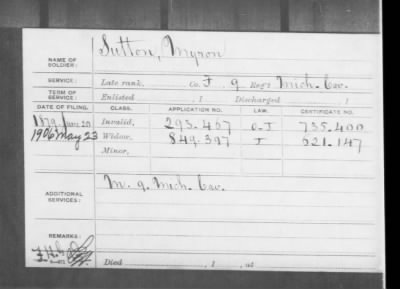 NAME OF SOLDIER: Sutton, Myron
SERVICE: Late rank, Co. F. 9 Reg't Mich. Cav.
TERM OF SERVICE: Enlisted , 1 Discharged , 1
DATE OF FILING. CLASS. APPLICATION NO. LAW. CERTIFICATE NO.
1879 June 20 Invalid, 293.467 O.J 735.400
1906 May 23 Widow, 849.397 J 621.147
Minor,
ADDITIONAL SERVICES: M. 9. Mich. Cav.
REMARKS:
Died , 1 , at